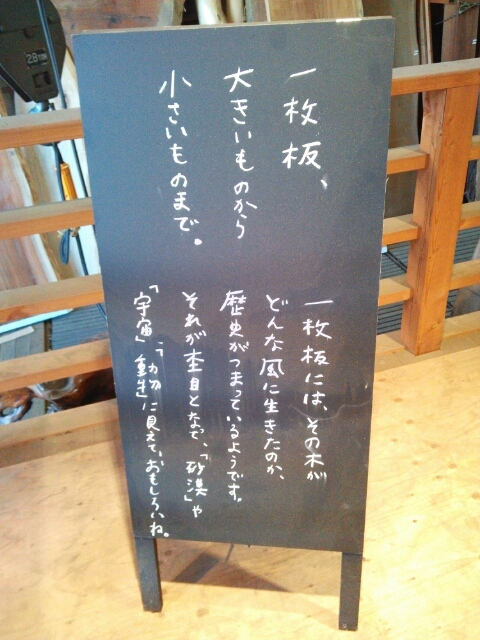 一枚板、
大きいものから
小さいものまで。
一枚板には、その木が
どんな風に生きたのか、
歴史がつまっているようです。
それが杢目となって、「砂漠」や
「宇宙」「動物」に見えて、おもしろいね。